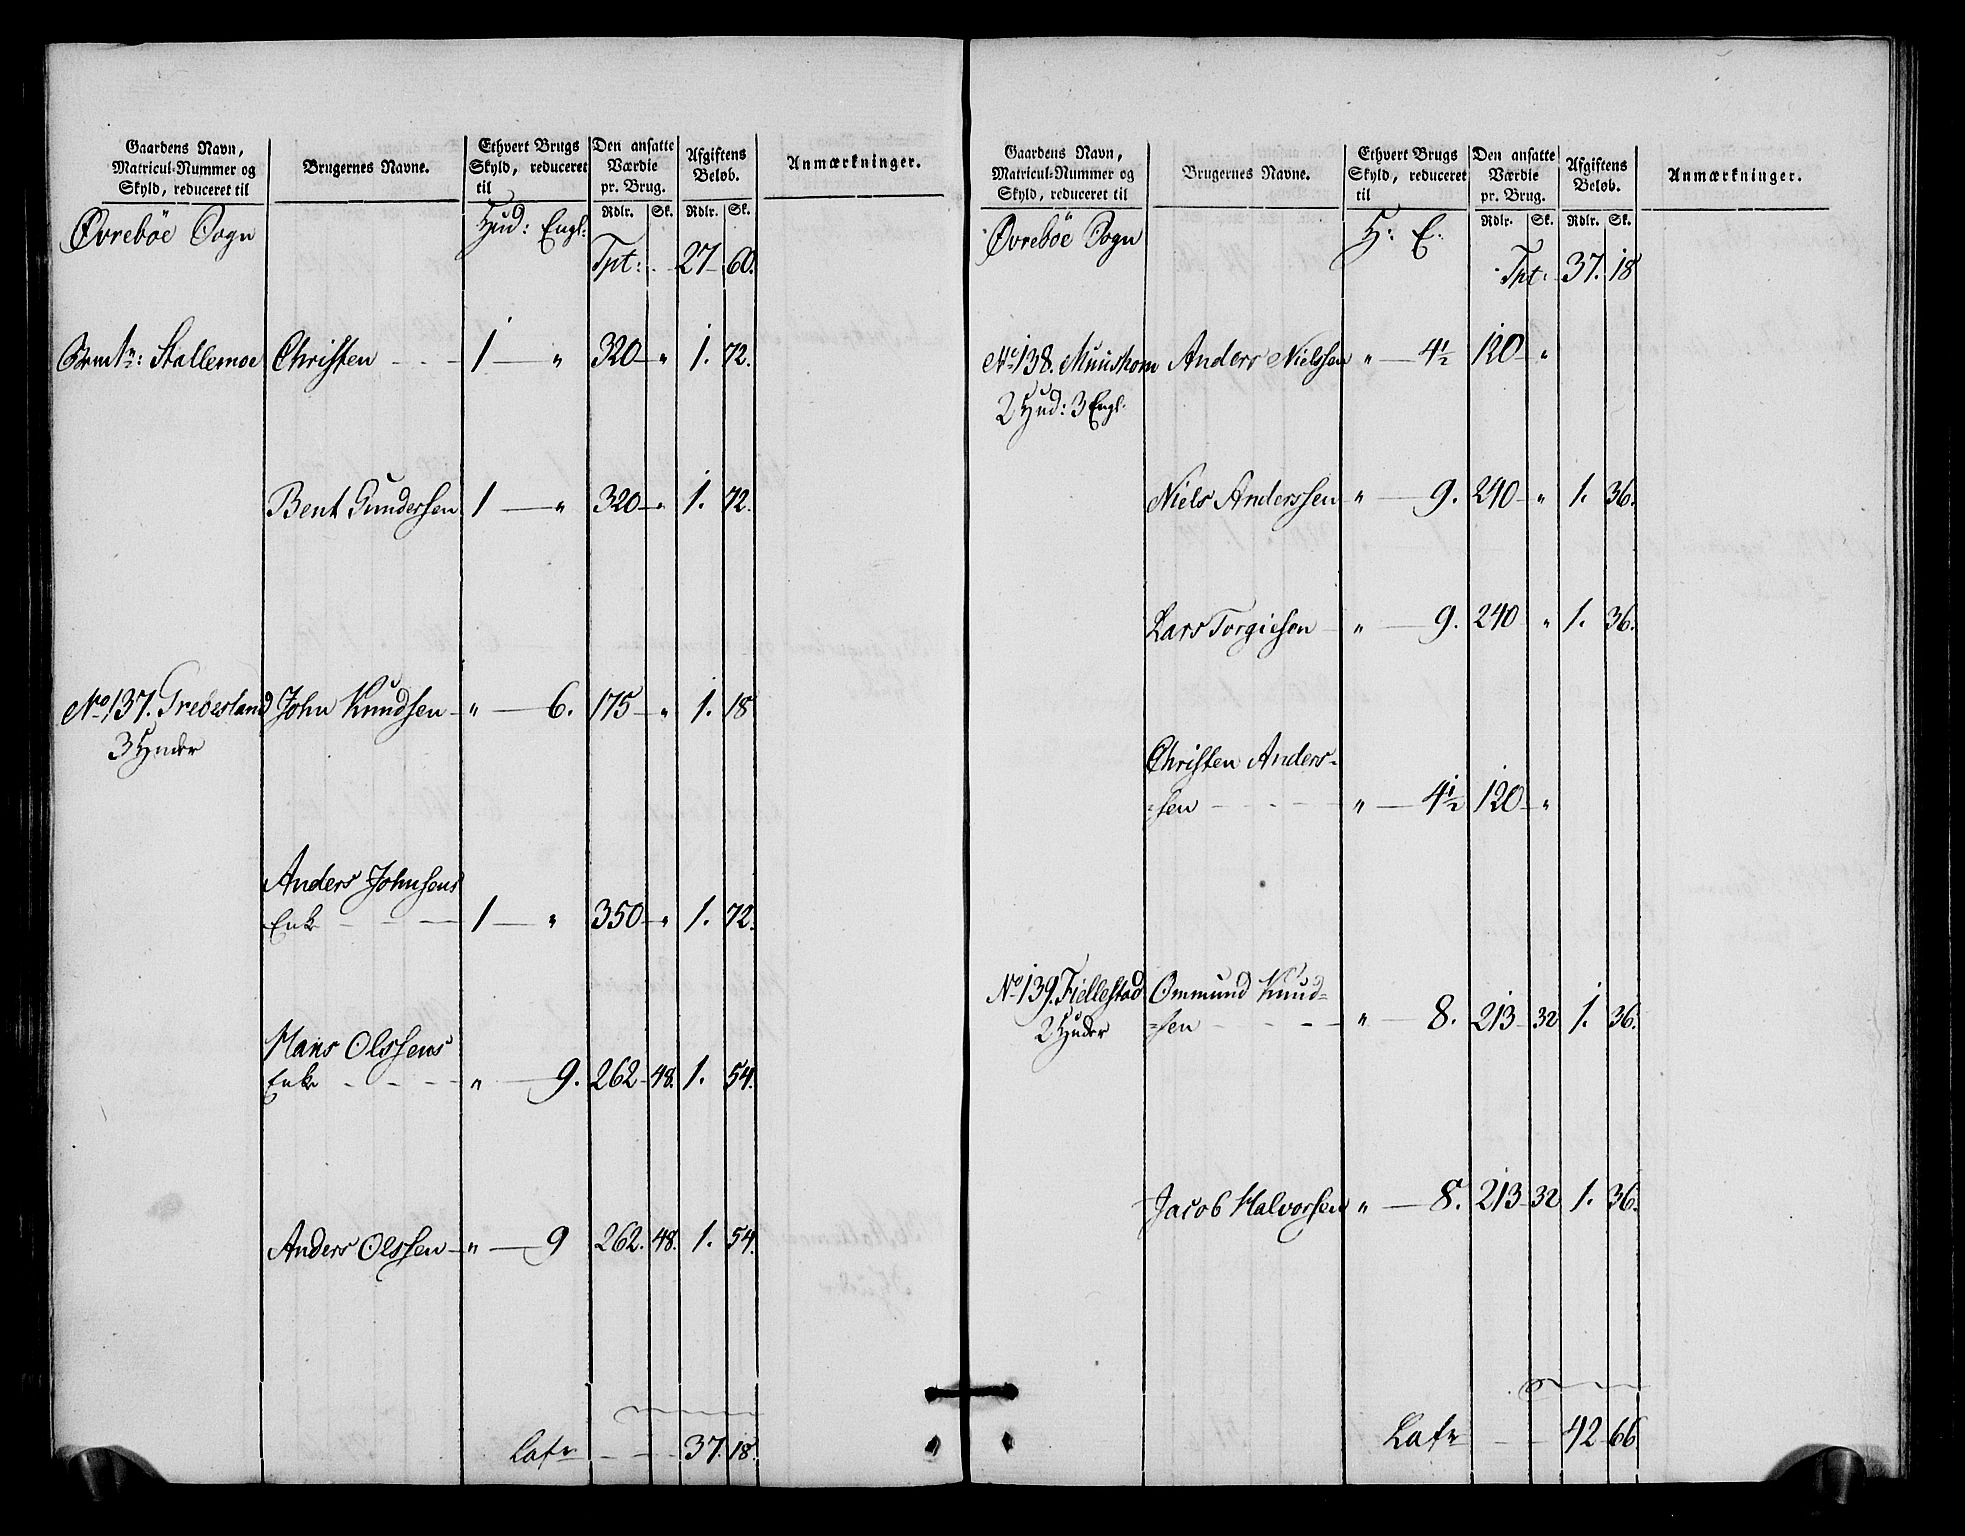 Gaardens Navn,
Matricul-Nummer og
Skyld, reduceret til
Brugernes Navne.
Ethvert Brugs
Skyld, reduceret
til
Den ansatte
Værdie
pr. Brug.
Afgiftens
Beløb.
Anmærkninger.
Rdlr. Sk. Rdlr. Sk.
Øvrebøe Sogn Hud: Engl:
Tpt: 27 60.
Stallemoe Christen 1 " 320 " 1. 72.
Bent Gundersen 1 " 320 " 1. 72.
No 137. Greibesland John Knudsen " 6. 175 " 1. 18
3 Huder
Anders Johnsens
Enke 1 " 350 " 1. 72.
Hans Olssens
Enke " 9. 262 48. 1. 54.
Anders Olssen " 9 262. 48. 1. 54.
Lats 37. 18.
Gaardens Navn,
Matricul-Nummer og
Skyld, reduceret til
Brugernes Navne.
Ethvert Brugs
Skyld, reduceret
til
Den ansatte
Værdie
pr. Brug.
Afgiftens
Beløb.
Anmærkninger.
Rdlr. Sk. Rdlr. Sk.
Øvrebøe Sogn H: E.
Tpt: 37. 18
No 138. Muushom Anders Nielssen " 4½ 120 "
2 Hud: 3 Engl.
Niels Anderssen " 9. 240 " 1. 36.
Lars Torgiesen " 9. 240 " 1. 36.
Christen Anders-
-sen " 4½ 120 "
No 139. Fiellestad Ommund Knud-
2 Huder -sen " 8. 213 32 1. 36.
Jacob Halvorsen " 8. 213 32 1. 36.
Lats 42 66